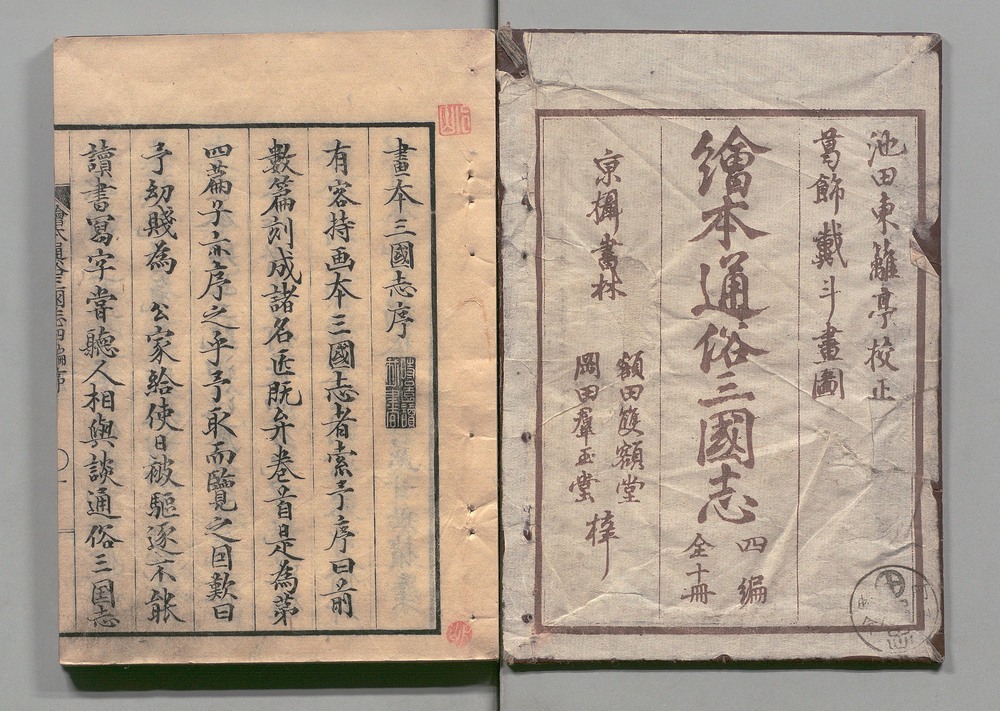 池田東籬亭校正
葛飾戴斗畫圖
繪本通俗三國志
四編
全十冊
書林
額田雙額堂
岡田羣玉堂
梓
畫本三國志序
有客持画本三國志者索予序曰前
數篇刻成諸名匠既弁卷首是為第
四篇子亦序之乎予取而覽之因歎曰
予幼賤為 公家給使日被驅逐不能
讀書寫字嘗聽人相與談通俗三国志